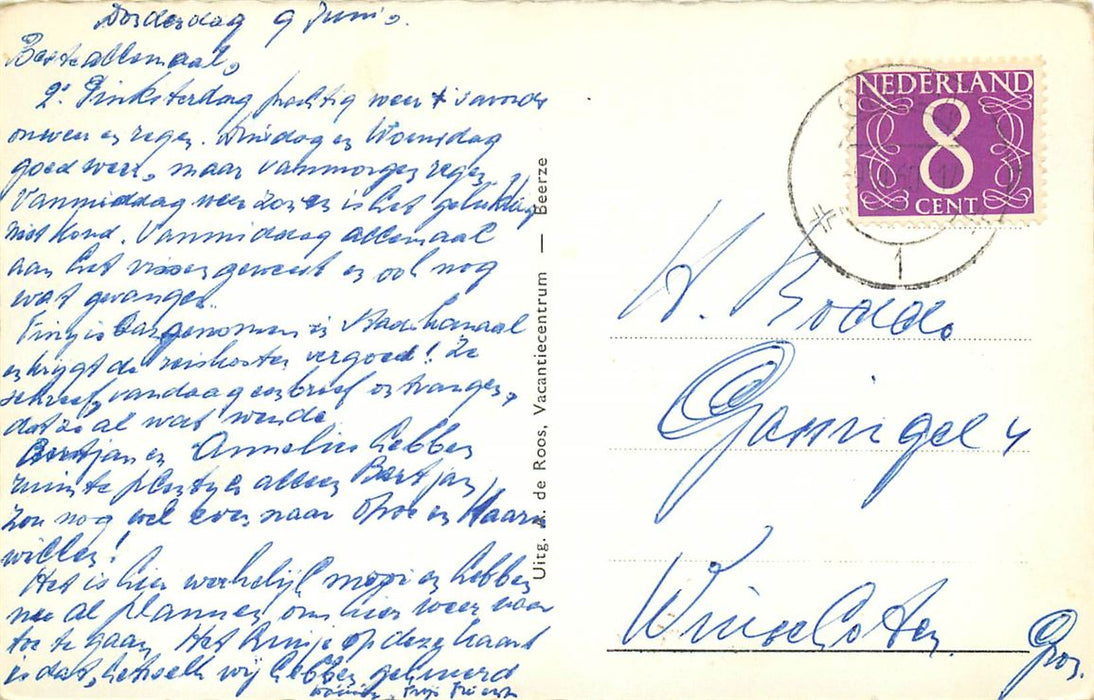 Donderdag 9 Juni.
Beste allemaal,
2e Pinksterdag prachtig weer + 's avonds
onweer en regen. Dinsdag en Woensdag
goed weer, maar vanmorgen regen.
Vanmiddag weer zon en is het gelukkig
niet koud. Vanmiddag allemaal
aan het vissen geweest en ook nog
wat gevangen.
Tiny is aangenomen in
en krijgt de reiskosten vergoed! Ze
schreef vandaag een brief ontvangen,
dat ze al wat wende
Bertjan en Annelies hebben
ruimte plenty en alleen Bertjan
zou nog wel even naar Opoe en Haar
willen!
Het is hier werkelijk mooi en hebben
nu al plannen om hier weer naar
toe te gaan. Het huisje op deze kaart
is dat, hetwelk wij hebben gehuurd
Uitg. A. de Roos, Vacantiecentrum — Beerze
NEDERLAND
8
CENT
1
H. Bodde
Garsingel 4
Winschoten
Gron.